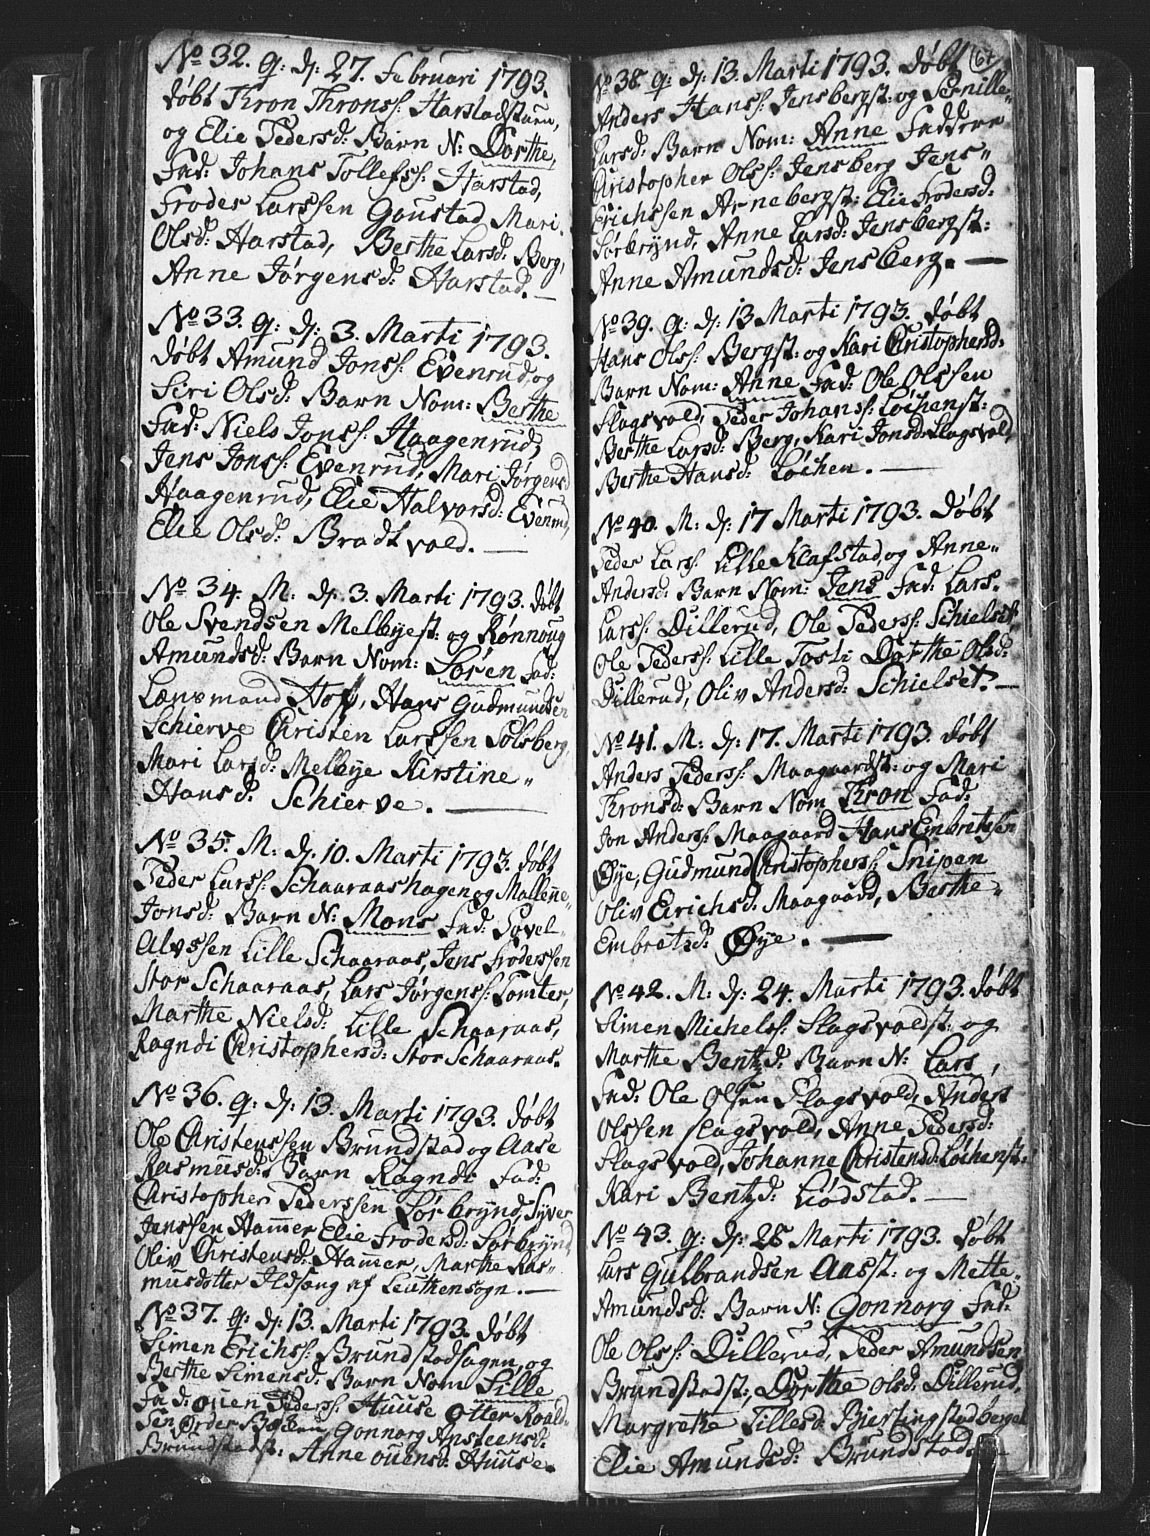 No 32. q: d: 27. Februari 1793.
døbt Thron Throns: Harstadstuen,
og Elie Peders d: Barn N: Dorthe,
Fad: Johans Tollefs: Harstad,
Froder Larssen Goustad, Mari
Olsd: Harstad, Berthe Larsd: Berg,
Anne Jørgensd: Harstad. —
No 33. q: d: 3. Marti 1793.
døbt Amund Jonss: Evenrud, og
Siri Olsd: Barn Nom: Berthe
Fad: Niels Jonss: Haagenrud,
Jens Jonss: Evenrud, Mari Jørgensd
Haagenrud, Elie Halvorsd: Evenrud,
Elie Olsd: Bradtvold. —
No 34. M. d: 3. Marti 1793. døbt
Ole Svendsen Melbyest: og Rønnoug
Amundsd: Barn Nom: Søren Fad:
Lensmand Hoff, Hans Gudmundsen
Schierve Christen Larssen Solsberg,
Mari Larsd: Melbye Kirstine „
Hansd: Schierve. —
No 35. M. d. 10. Marti 1793. døbt
Peder Larss: Schaaraashagen og Mallene „
Jonsd: Barn N: Mons Fad: Povel „
Alvssen Lille Schaaraas, Jens Frodersen
Stor Schaaraas, Lars Jørgens: Tomter,
Marthe Nielsd: Lille Schaaraas,
Ragndi Christophersd: Stor Schaaraas.
No 36. q: d: 13. Marti 1793. døbt
Ole Christenssen Brundstad og Aase
Rasmusd: Barn Ragndi Fad:
Christopher Pederssen Sørbrynd, Syver
Jenssen Hammer Elie Frodersd: Sørbrynd
Oliv Christensd: Hammer, Marthe Ras„
musdotter Ildsang af Leuthensogn. —
No 37. q: d: 13. Marti 1793. døbt
Simen Erichs: Brundstadhagen og
Berthe Simensd: Barn Nom Sille
Fad: Ouen Peders: Huuse Otter Roald„
sen Gonnorg Ansteensd:
Brundstadst: Anne Ouensd: Huuse.
67
No 38 q: d: 13. Marti 1793. døbt
Anders Hanss: Jensbergst: og Pernille „
Larsd: Barn Nom: Anne Faddere
Christopher Olss: Jensberg Jens „
Erichssen Arnebergst: Elie Frodersd:
Sørbrynd, Anne Larsd: Jensbergst:
Anne Amundsd: Jensberg. —
No 39. q: d: 13 Marti 1793. døbt
Hans Olss: Bergst: og Kari Christophersd:
Barn Nom: Anne Fad: Ole Olssen
Slagsvold, Peder Johanss: Løchenst:
Berthe Larsd: Berg, Kari Jonsd: Slagsvold,
Berthe Hansd: Løchen. —
No 40. M: d: 17 Marti 1793. Døbt
Peder Larss: Lille Klafstad, og Anne „
Andersd: Barn Nom: Jens Fad: Lars.
Larss: Dillerud, Ole Pederss: Schielset,
Ole Pederss: Lille Tosti Dorthe Olsd:
Dillerud, Oliv Andersd: Schielset. —
No 41. M: d: 17. Marti 1793. døbt
Anders Pederss: Maagaardst: og Mari
Thronsd: Barn Nom Thron Fad:
Jon Anderss: Maagaard Hans Embretssen
Øye, Gudmund Christopherss: Snipen
Oliv Erichsd: Maagaard, Berthe „
Embretsd: Øye. —
No 42. M: d: 24. Marti 1793. døbt
Simen Michels: Slagsvoldst: og
Marthe Bentzd: Barn N: Lars,
Fad: Ole Olsen Slagsvold, Anders
Olssen Slagsvold, Anne Pedersd:
Slagsvold, Johanne Christensd: Løchenst:
Kari Bentzd: Liødstad. —
No 43. q: d: 28 Marti 1793. døbt
Lars Gulbrandsen Aasst: og Mette „
Amundsd: Barn N: Gonnorg Fad:
Ole Olss: Dillerud, Peder Amundsen
Brundstadst: Dorthe Olsd: Dillerud,
Margrethe Tillesd Bierlingstadberget
Elie Amundsd: Brundstad.